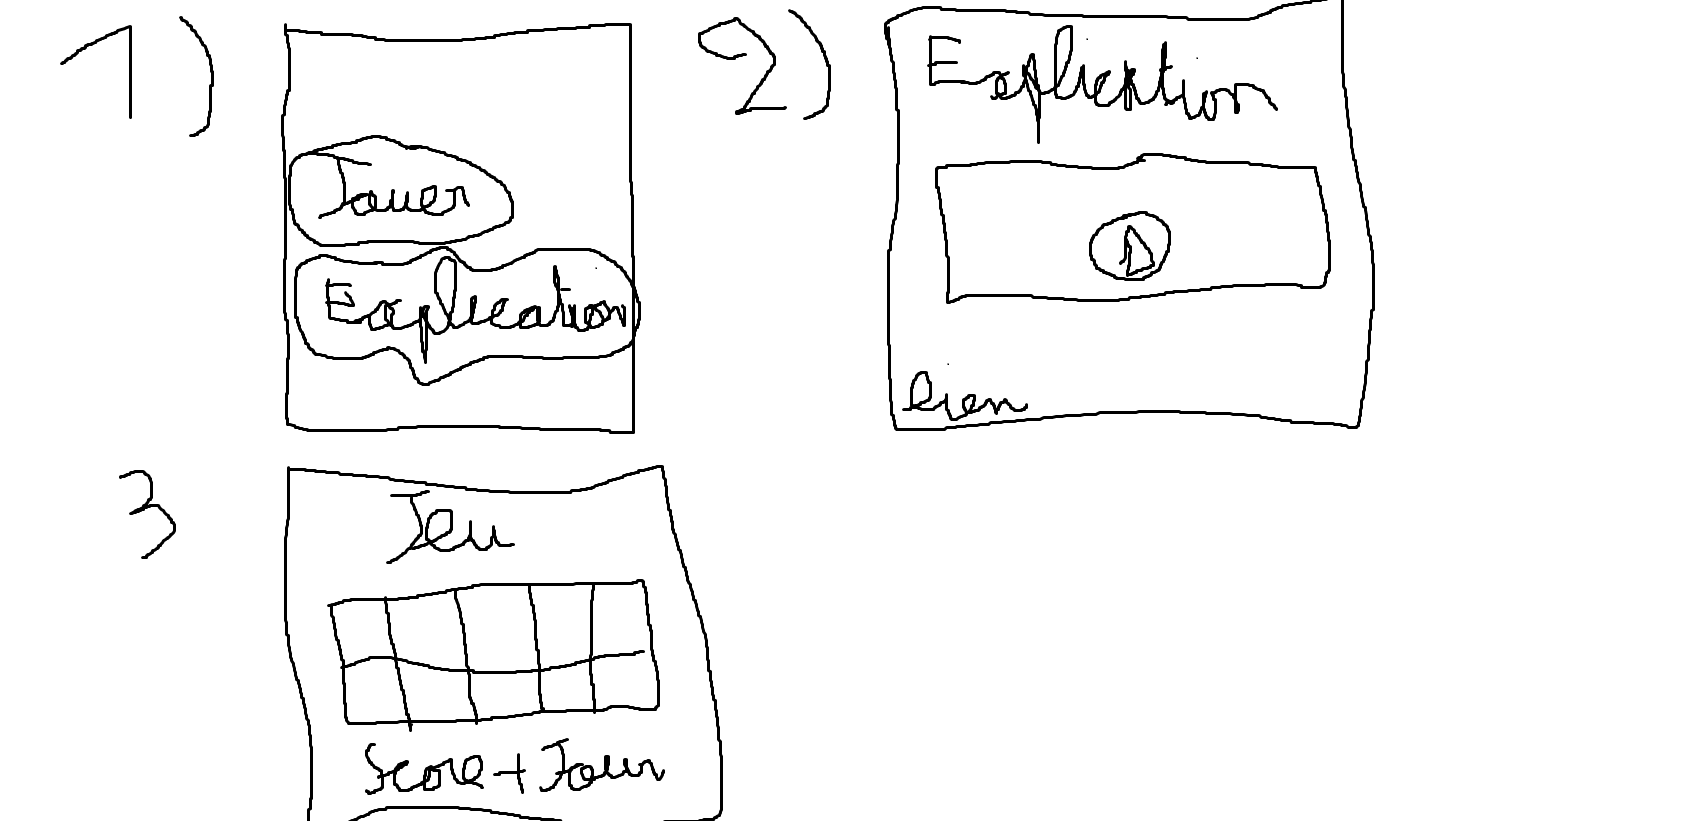 1)
Jouer
Explication
2)
Explication
lien
3
Jeu
Score+Jour